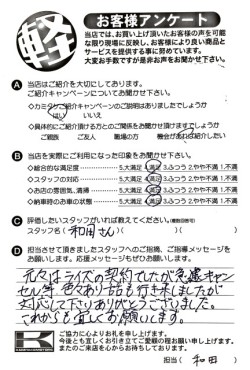 軽
お客様アンケート
当店では、お買い上げ頂いたお客様の声を可能
な限り現場に反映し、お客様により良い商品と
サービスを提供する事に努めています。
大変お手数ですが是非お声をお聞かせ下さい。
A 当店はご紹介を大切にしております。
ご紹介キャンペーンについてお聞かせ下さい。
ご紹介キャンペーンのご説明はありましたでしょうか
はい いいえ
◇具体的にご紹介頂ける方とのご関係をお聞かせ頂けますでしょうか
ご親族 ご友人 職場の方 機会があれば紹介したい
B 当店を実際にご利用になった印象をお聞かせ下さい。
◇総合的な満足度 5.大満足 4.満足 3.ふつう 2.やや不満 1.不満
◇スタッフの対応 5.大満足 4.満足 3.ふつう 2.やや不満 1.不満
◇お店の雰囲気、清掃 5.大満足 4.満足 3.ふつう 2.やや不満 1.不満
◇納車時のお車の状態 5.大満足 4.満足 3.ふつう 2.やや不満 1.不満
C 評価したいスタッフがいれば教えてください。(複数回答可)
スタッフ名( 和田さん )( )( )
D 担当させて頂きましたスタッフへのご指摘、ご指導メッセージを
お願いします。応援メッセージもぜひお願いします。
元々はライズの契約でしたが急遽キャン
セル等、色々あり
対応して下さりありがとうございました。
これからも宜しくお願いします。
K
ご協力に心よりお礼を申し上げます。
今後とも宜しくお引き立てご愛顧の程お願い申し上げます。
またのご来店を心からお待ちしております。
担当( 和田 )